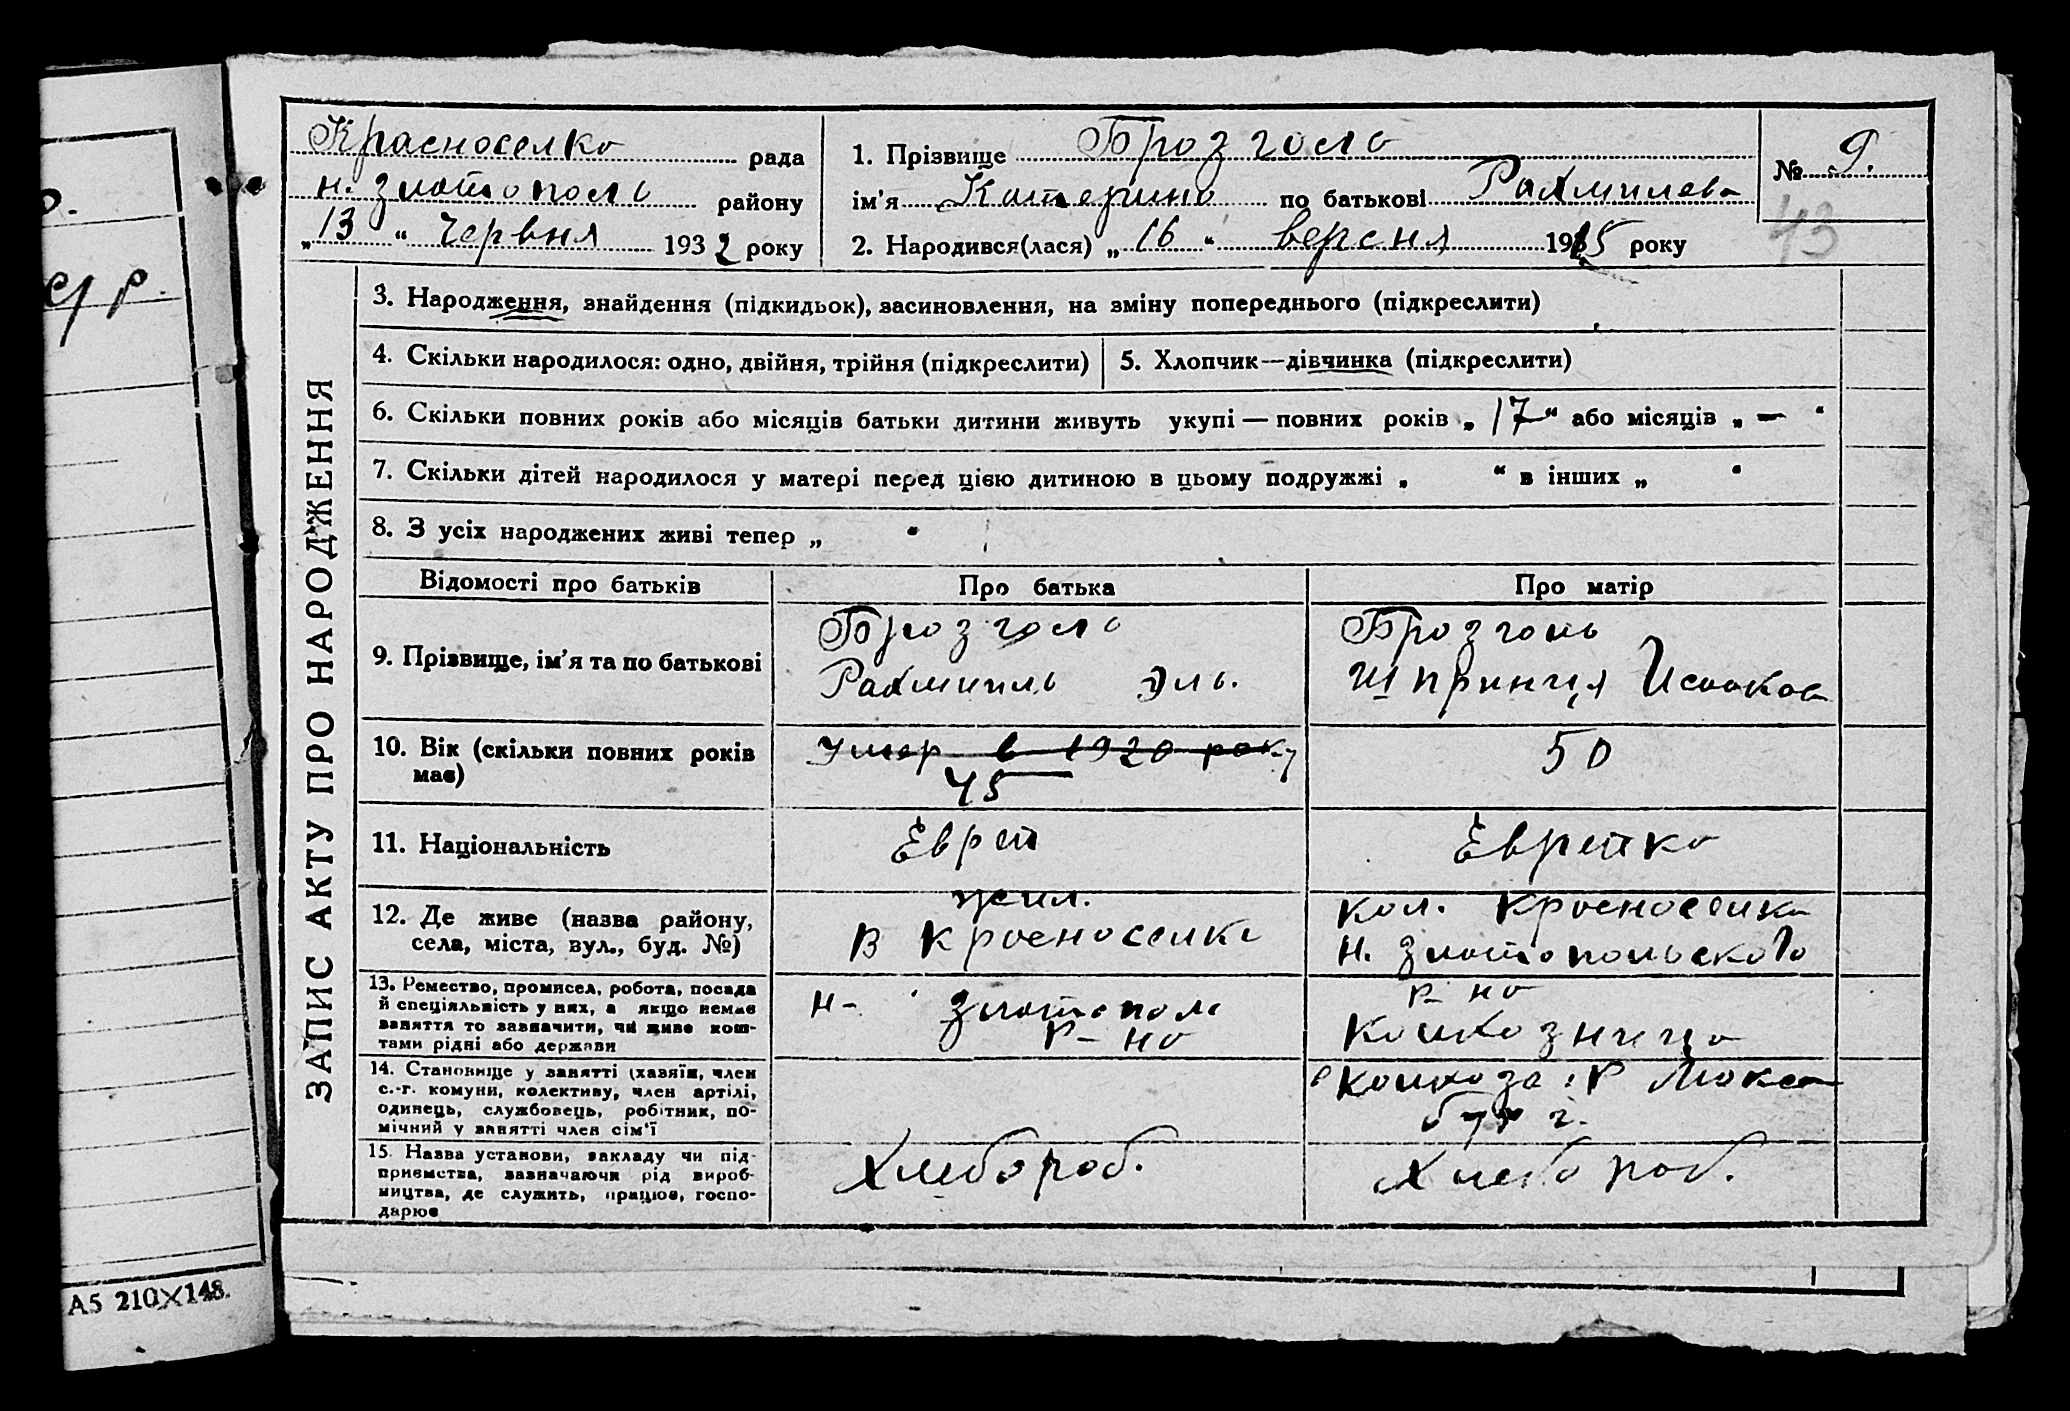 Красноселка рада
Н. Златополь району
„13“ Червня 1932 року
1. Прізвище Брозголь
ім’я Катерина по батькові Рахмилева
2. Народився(лася) „16“ версня 1915 року
№ 9.
43
ЗАПИС АКТУ ПРО НАРОДЖЕННЯ
3. Народження, знайдення (підкидьок), засиновлення, на зміну попереднього (підкреслити)
4. Скільки народилося: одно, двійня, трійня (підкреслити)
5. Хлопчик—дівчинка (підкреслити)
6. Скільки повних років або місяців батьки дитини живуть укупі — повних років „17“ або місяців „—“
7. Скільки дітей народилося у матері перед цією дитиною в цьому подружжі „ “ в інших „ “
8. З усіх народжених живі тепер „ “
Відомості про батьків
Про батька
Про матір
9. Прізвище, ім’я та по батькові
Брозголь
Рахмиль Эль.
Брозголь
Шпринця Исааков
10. Вік (скільки повних років
має)
Умер в 1920 року
45
50
11. Національність
Еврей
Еврейка
12. Де живе (назва району,
села, міста, вул., буд. №)
жил.
в Красноселке
кол. Красноселка
Н. Златопольского
13. Ремество, промисел, робота, посада
й спеціяльність у них, а якщо немає
заняття то зазначити, чи живе кош-
тами рідні або держави
Н- Златополь
р-на
р-на
колхозница
14. Становище у занятті (хазяїн, член
с.-г. комуни, колективу, член артілі,
одинець, службовець, робітник, по-
мічний у занятті член сім’ї
колхоза
15. Назва установи, закладу чи під-
приємства, зазначаючи рід вироб-
ництва, де служить, працює, госпо-
дарює
Хлебороб.
Хлебороб.
А5 210×148.